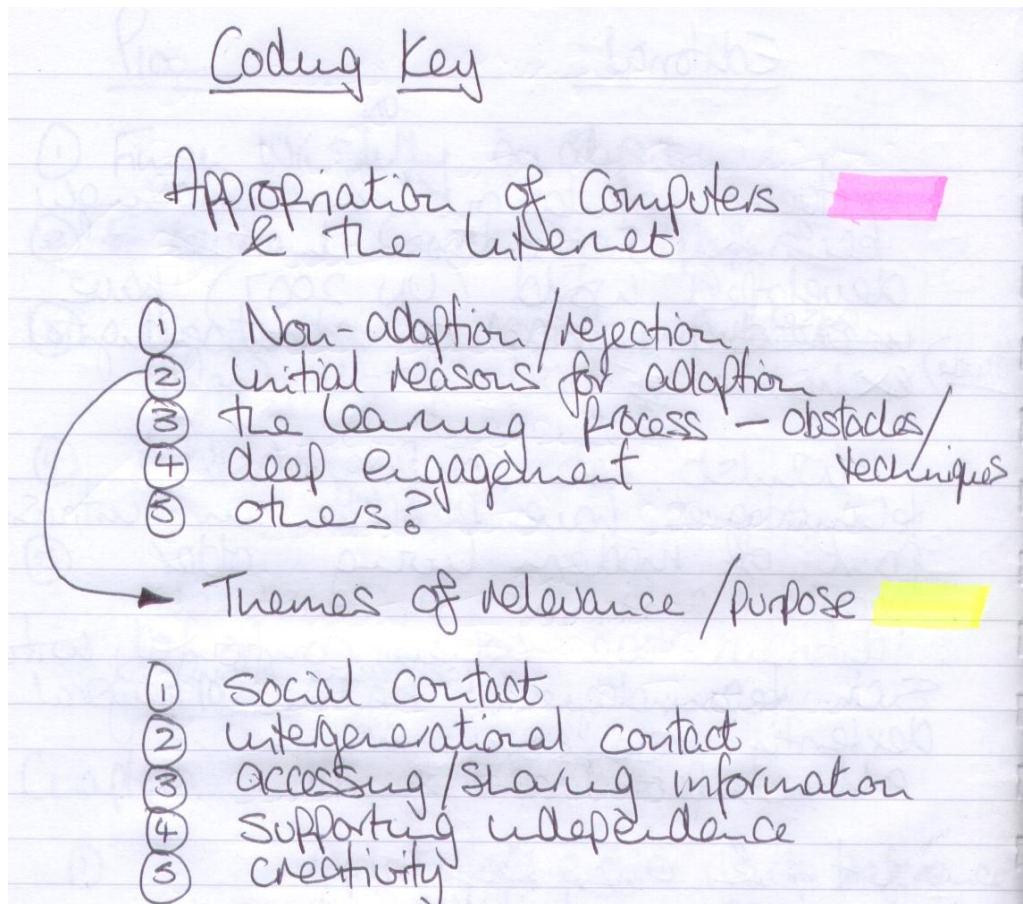 Coding Key
Appropriation of Computers
& the internet
① Non-adoption/rejection
② initial reasons for adoption
③ the learning process – obstacles/
techniques
④ deep engagement
⑤ others?
Themes of relevance/purpose
① social contact
② intergenerational contact
③ accessing/sharing information
④ supporting independence
⑤ creativity